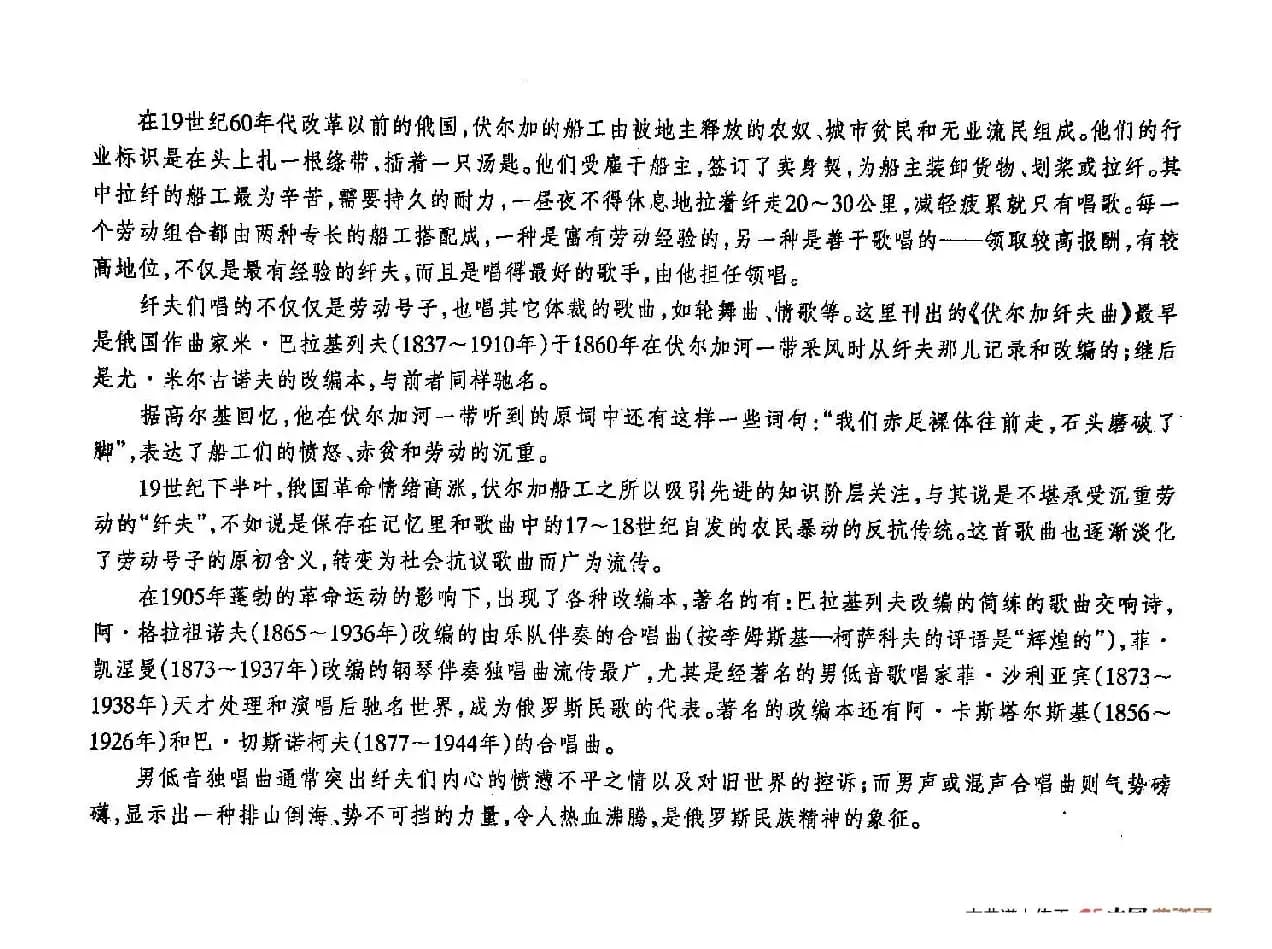 在19世纪60年代改革以前的俄国，伏尔加的船工由被地主释放的农奴、城市贫民和无业流民组成。他们的行
业标识是在头上扎一根绦带，插着一只汤匙。他们受雇于船主，签订了卖身契，为船主装卸货物、划桨或拉纤。其
中拉纤的船工最为辛苦，需要持久的耐力，一昼夜不得休息地拉着纤走20～30公里，减轻疲累就只有唱歌。每一
个劳动组合都由两种专长的船工搭配成，一种是富有劳动经验的，另一种是善于歌唱的——领取较高报酬，有较
高地位，不仅是最有经验的纤夫，而且是唱得最好的歌手，由他担任领唱。
纤夫们唱的不仅仅是劳动号子，也唱其它体裁的歌曲，如轮舞曲、情歌等。这里刊出的《伏尔加纤夫曲》最早
是俄国作曲家米·巴拉基列夫（1837～1910年）于1860年在伏尔加河一带采风时从纤夫那儿记录和改编的；继后
是尤·米尔古诺夫的改编本，与前者同样驰名。
据高尔基回忆，他在伏尔加河一带听到的原词中还有这样一些词句：“我们赤足裸体往前走，石头磨破了
脚”，表达了船工们的愤怒、赤贫和劳动的沉重。
19世纪下半叶，俄国革命情绪高涨，伏尔加船工之所以吸引先进的知识阶层关注，与其说是不堪承受沉重劳
动的“纤夫”，不如说是保存在记忆里和歌曲中的17～18世纪自发的农民暴动的反抗传统。这首歌曲也逐渐淡化
了劳动号子的原初含义，转变为社会抗议歌曲而广为流传。
在1905年蓬勃的革命运动的影响下，出现了各种改编本，著名的有：巴拉基列夫改编的简练的歌曲交响诗，
阿·格拉祖诺夫（1865～1936年）改编的由乐队伴奏的合唱曲（按李姆斯基—柯萨科夫的评语是“辉煌的”），菲·
凯涅曼（1873～1937年）改编的钢琴伴奏独唱曲流传最广，尤其是经著名的男低音歌唱家菲·沙利亚宾（1873～
1938年）天才处理和演唱后驰名世界，成为俄罗斯民歌的代表。著名的改编本还有阿·卡斯塔尔斯基（1856～
1926年）和巴·切斯诺柯夫（1877～1944年）的合唱曲。
男低音独唱曲通常突出纤夫们内心的愤懑不平之情以及对旧世界的控诉；而男声或混声合唱曲则气势磅
礴，显示出一种排山倒海、势不可挡的力量，令人热血沸腾，是俄罗斯民族精神的象征。